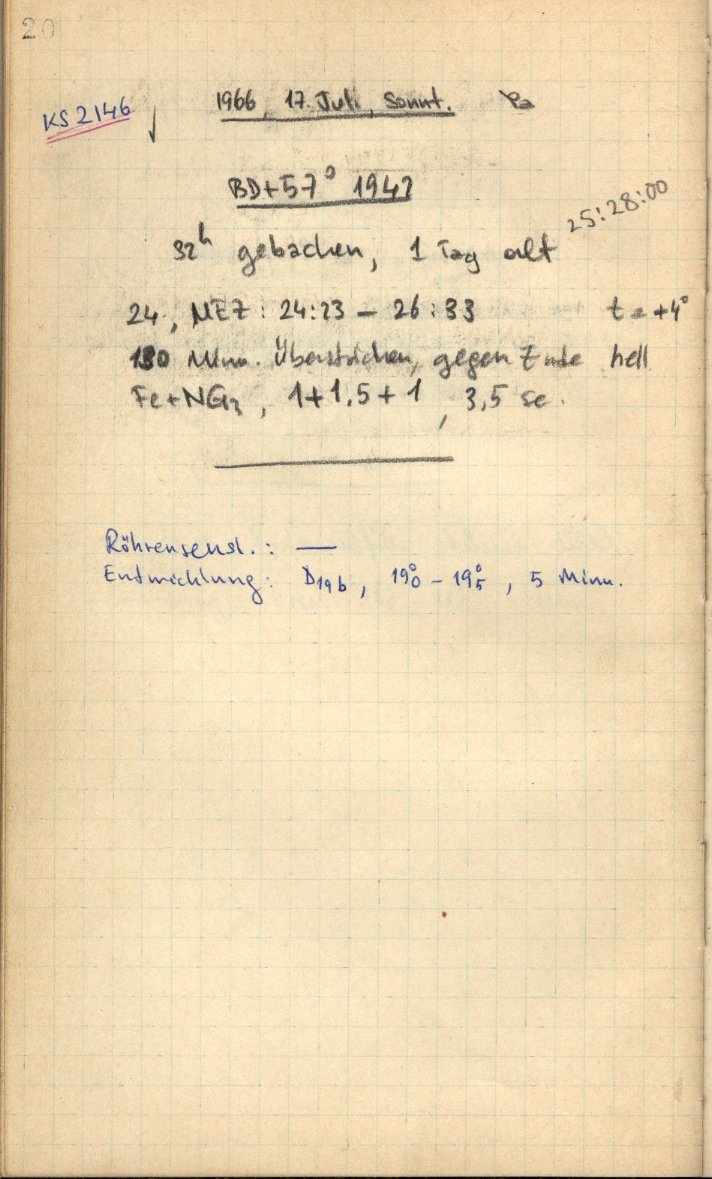 20
KS 2146 ↓ 1966, 17. Juli, Sonnt. Pa
BD+57° 1942
25:28:00
32h gebachen, 1 Tag alt
24., MEZ: 24:23 – 26:33 t = +4°
130 Minn. Überstrichen, gegen Ende hell
Fe+NGr, 1+1,5+1, 3,5 se.
Röhrensenst.: —
Entwicklung: D19b, 19°0 – 19°5, 5 Minn.